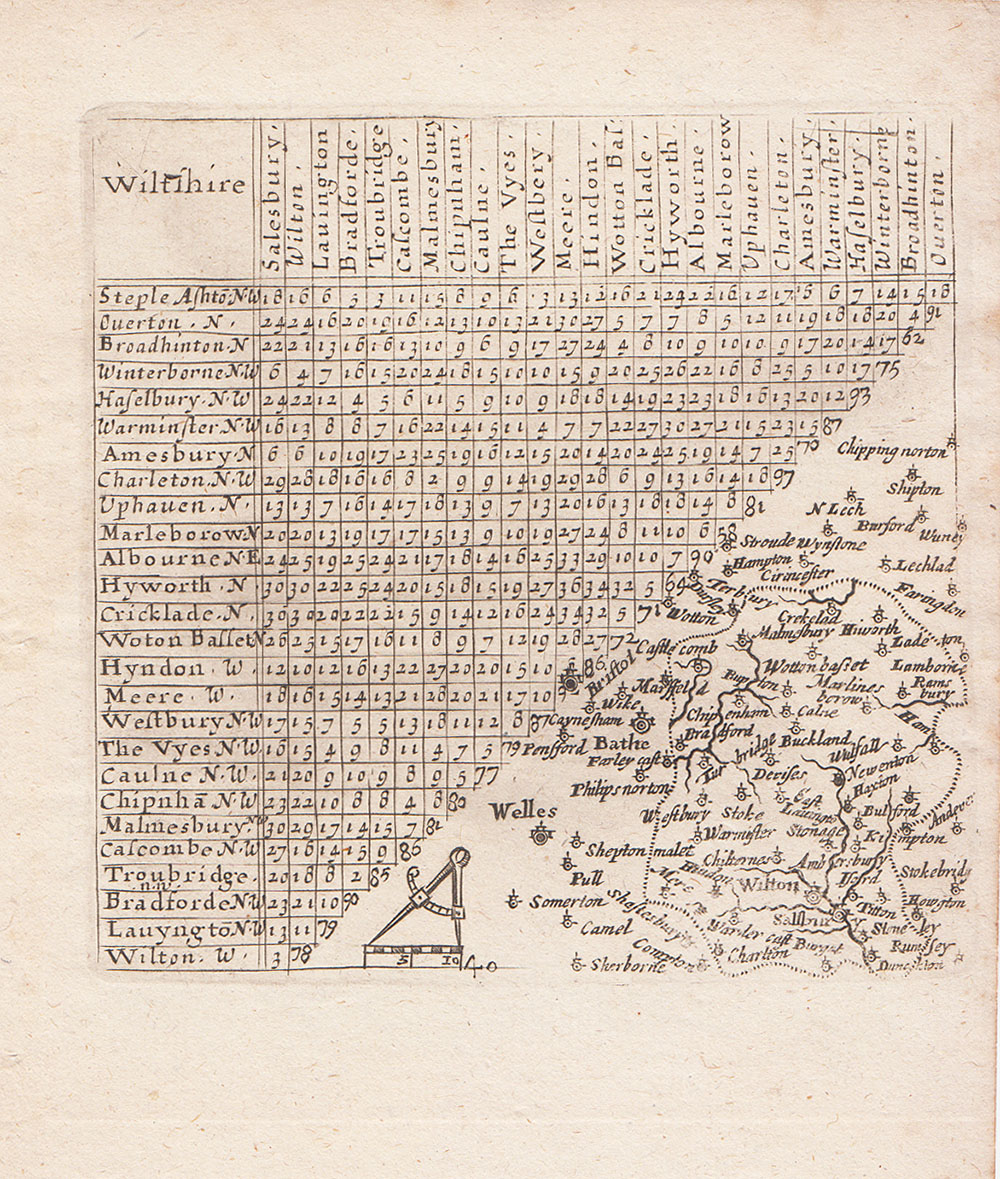 Wiltshire
Salesbury.
Wilton.
Lauington
Bradforde.
Troubridge
Cascombe.
Malmesbury
Chipnham.
Caulne.
The Vyes.
Westbery.
Meere.
Hindon.
Wotton Bas:
Cricklade.
Hyworth.
Albourne.
Marleborow
Uphauen.
Charleton.
Amesbury.
Warminster.
Haselbury.
Winterborne
Broadhinton.
Ouerton.
Steple Ashtō N.W 18 16 6 5 3 11 15 8 9 6 3 13 12 16 21 24 22 16 12 17 16 6 7 14 15 18
Ouerton. N. 24 24 16 20 19 16 12 13 10 13 21 30 27 5 7 7 8 5 12 11 19 18 18 20 4 91
Broadhinton. N 22 21 13 16 16 13 10 9 6 9 17 27 24 4 8 10 9 10 10 9 17 20 14 17 62
Winterborne N.W 6 4 7 16 15 20 24 18 15 10 10 15 9 20 25 26 22 16 8 25 5 10 17 75
Haselbury. N. W 24 22 12 4 5 6 11 5 9 10 9 18 18 14 19 23 23 18 16 13 20 12 93
Warminster. N. W 16 13 8 8 7 16 22 14 15 11 4 7 7 22 27 30 27 21 15 23 15 87
Amesbury. N 6 6 10 19 17 23 25 19 16 12 15 20 14 20 24 25 19 14 7 25 70
Charleton. N. W 29 28 18 16 16 8 2 9 9 14 19 29 28 6 9 13 16 14 18 97
Uphauen. N. 13 13 7 16 14 17 18 13 9 7 13 20 16 13 18 18 14 8 81
Marleborow N 20 20 13 19 17 17 15 13 9 10 19 27 24 8 11 10 6 58
Albourne. N. E 24 25 19 25 24 21 17 18 14 16 25 33 29 10 10 7 90
Hyworth. N 30 30 22 25 24 20 15 18 15 19 27 36 34 32 5 64
Cricklade. N. 30 30 20 22 22 15 9 14 12 16 24 34 32 5 71
Woton Basset N 26 25 15 17 16 11 8 9 7 12 19 28 27 72
Hyndon. W. 12 10 12 16 13 22 27 20 20 15 10 5 86
Meere. W. 18 16 15 14 13 21 28 20 21 17 10
Westbury. N. W 17 15 7 5 5 13 18 11 12 8 87
The Vyes N. W 16 15 4 9 8 11 4 7 5 79
Caulne N. W. 21 20 9 10 9 8 9 5 77
Chipnhā N. W 23 22 10 8 8 4 8 80
Malmesbury. NW 30 29 17 14 15 7 81
Cascombe. N. W 27 16 14 15 9 86
Troubridge. N. W 20 18 8 2 85
Bradforde N. W 23 21 10 90
Lauyngtō N. W 13 11 79
Wilton. W. 3 78
5 10 40
Chipping norton
Shipton
N Lech
Burford
Wuney
Stroude
Wynstone
Hampton
Cirincester
Lechlad
Faringdon
Terbury
Dursley
Wotton
Crekelad
Malmsbury
Hiworth
Castle comb
Wotton baset
Lamborn
Bristol
Marsfeld
Marlines
borow
Rams
bury
Wike
Caynesham
Chippenham
Calne
Bradford
Buckland
Wulfall
Pensford
Bathe
Farley cast
bridge
Devises
Newenton
Haxton
Philips norton
Westbury
Stoke
East
Bulford
Welles
Warmister
Stonage
Andever
Shepton malet
Chilternes
Ambersbury
Stokebridg
Pull
Hindon
Mere
Wilton
Shaftesbury
Somerton
Salsbur
Titton
Camel
Warder cast
Burget
Rumsey
Sherborne
Compton
Charlton